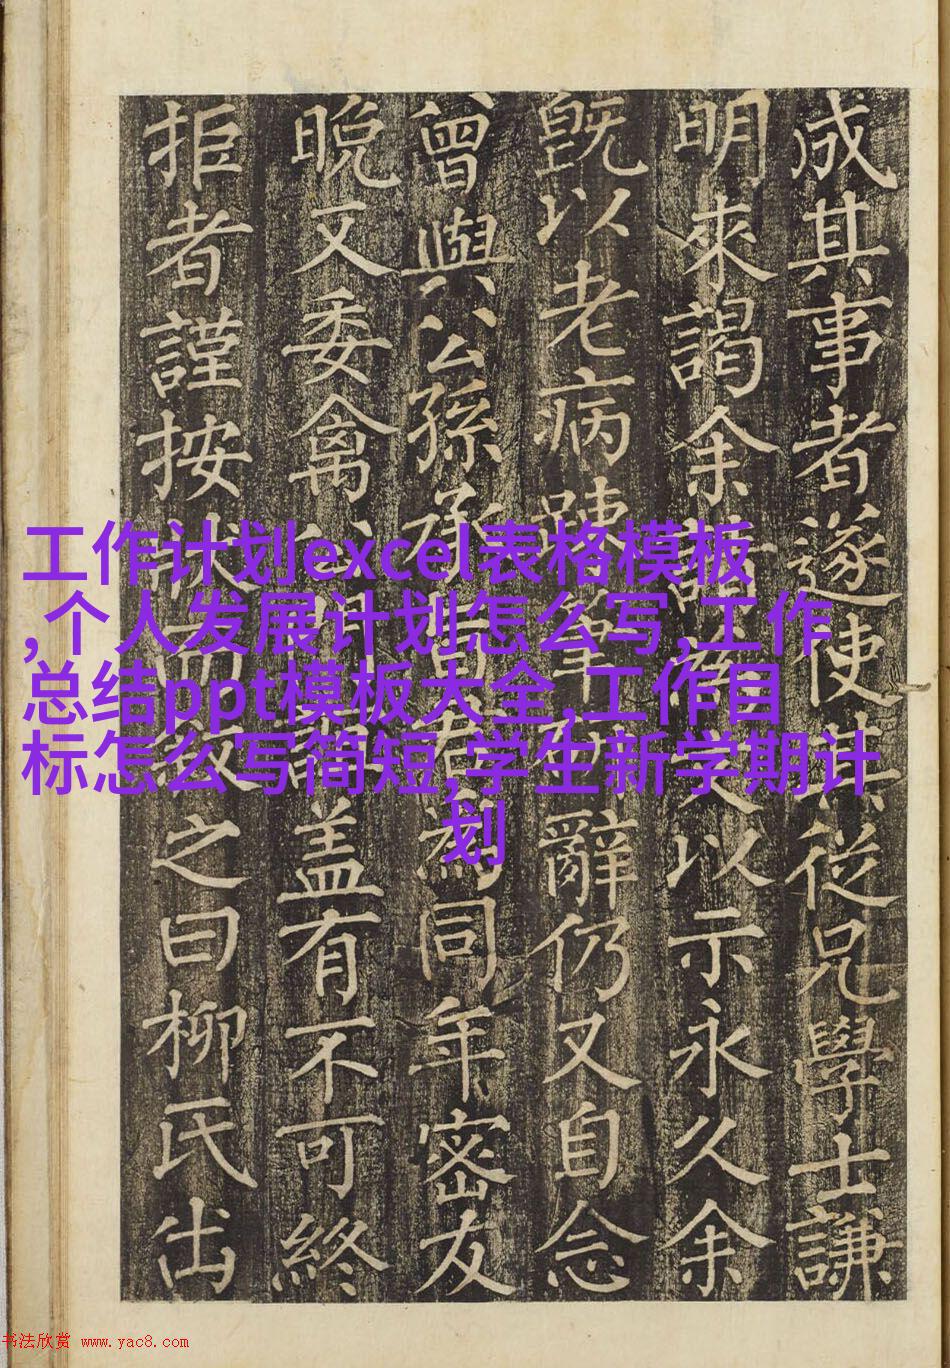 成其事者遂使其從兄學士謙
明來謁余請文以示永久余
既以老病踈筆辭仍又自念
曾與公孫承旨君為同年密友
晚又委禽盖有不可終
拒者謹按狀而叙之曰柳氏出
工作计划excel表格模板
,个人发展计划怎么写,工作
总结ppt模板大全,工作目
标怎么写简短,学生新学期计
划
书法欣赏 www.yac8.com